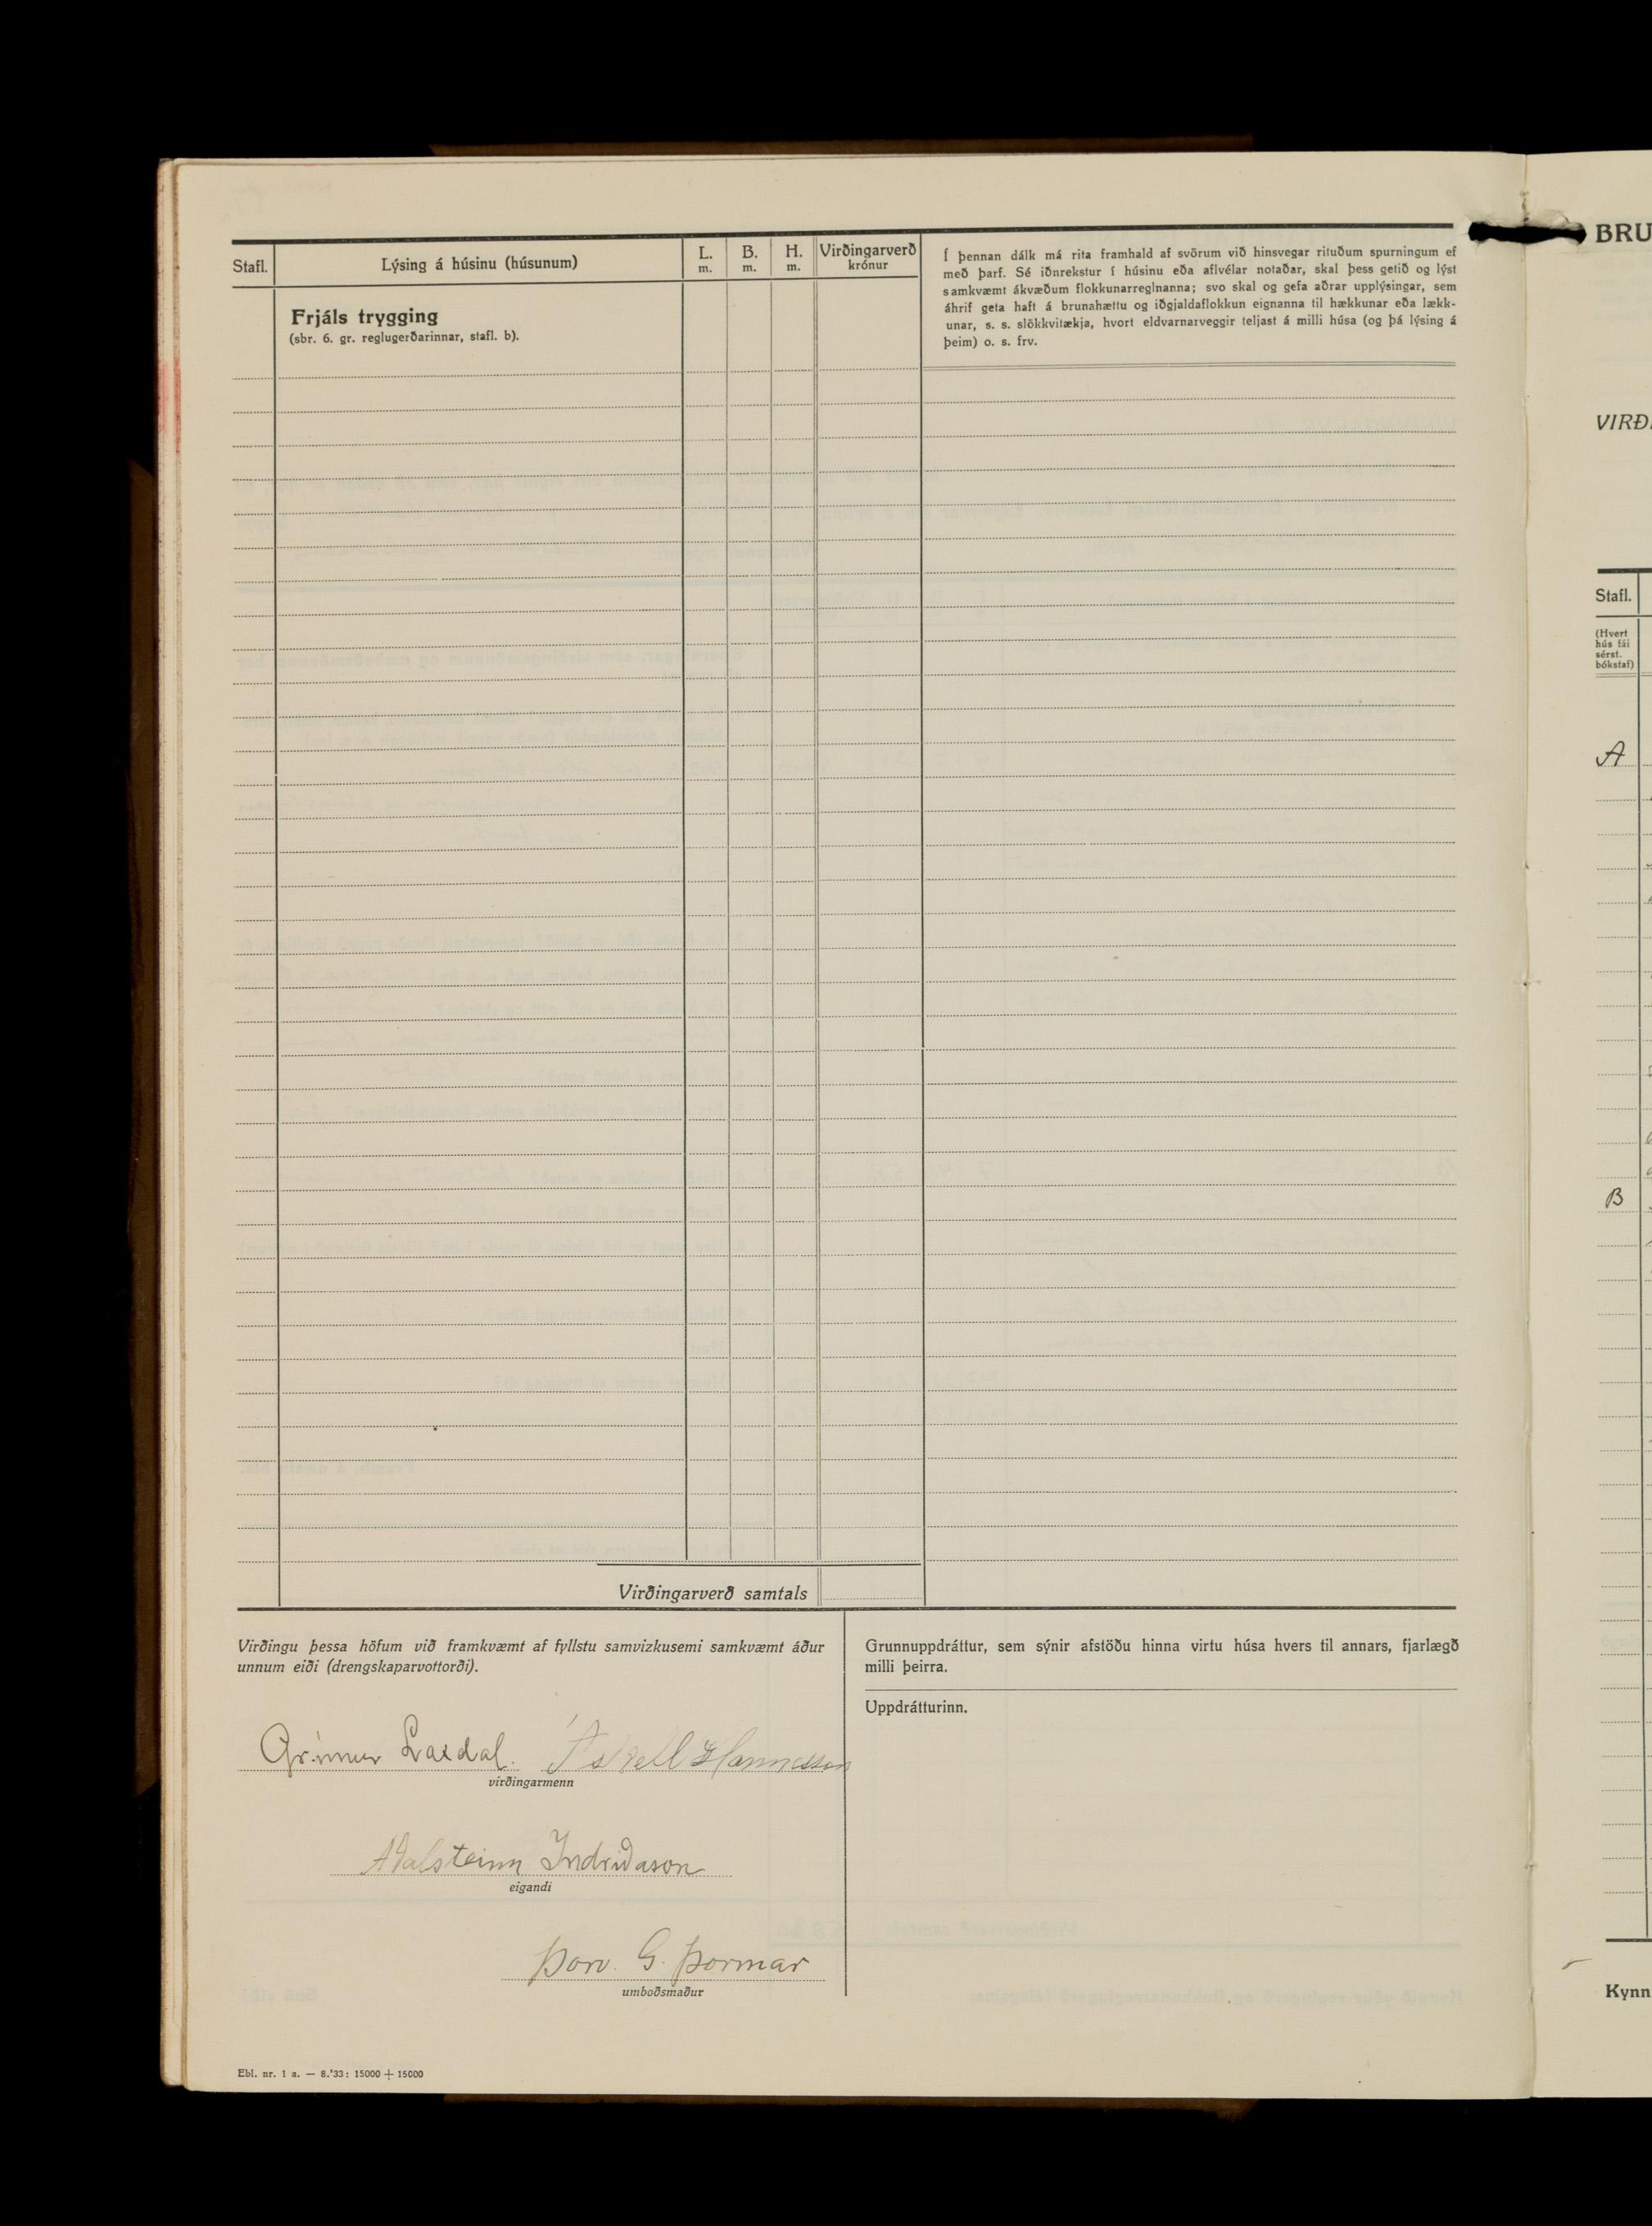 Stafl.
Lýsing á húsinu (húsunum)
L.
m.
B.
m.
H.
m.
Virðingarverð
krónur
Frjáls trygging
(sbr. 6. gr. reglugerðarinnar, stafl. b).
Í þennan dálk má rita framhald af svörum við hinsvegar rituðum spurningum ef
með þarf. Sé iðnrekstur í húsinu eða aflvélar notaðar, skal þess getið og lýst
samkvæmt ákvæðum flokkunarreglnanna; svo skal og gefa aðrar upplýsingar, sem
áhrif geta haft á brunahættu og iðgjaldaflokkun eignanna til hækkunar eða lækk-
unar, s. s. slökkvitækja, hvort eldvarnarveggir teljast á milli húsa (og þá lýsing á
þeim) o. s. frv.
Virðingarverð samtals
Virðingu þessa höfum við framkvæmt af fyllstu samvizkusemi samkvæmt áður
unnum eiði (drengskaparvottorði).
Grímur Laxdal. Áskell Hannesson
virðingarmenn
Aðalsteinn Indriðason
eigandi
Þorv. G. Þormar
umboðsmaður
Grunnuppdráttur, sem sýnir afstöðu hinna virtu húsa hvers til annars, fjarlægð
milli þeirra.
Uppdrátturinn.
Ebl. nr. 1 a. — 8.'33: 15000 + 15000
BRU
VIRÐ
Stafl.
(Hvert
hús fái
sérst.
bókstaf)
A
B
Kynn